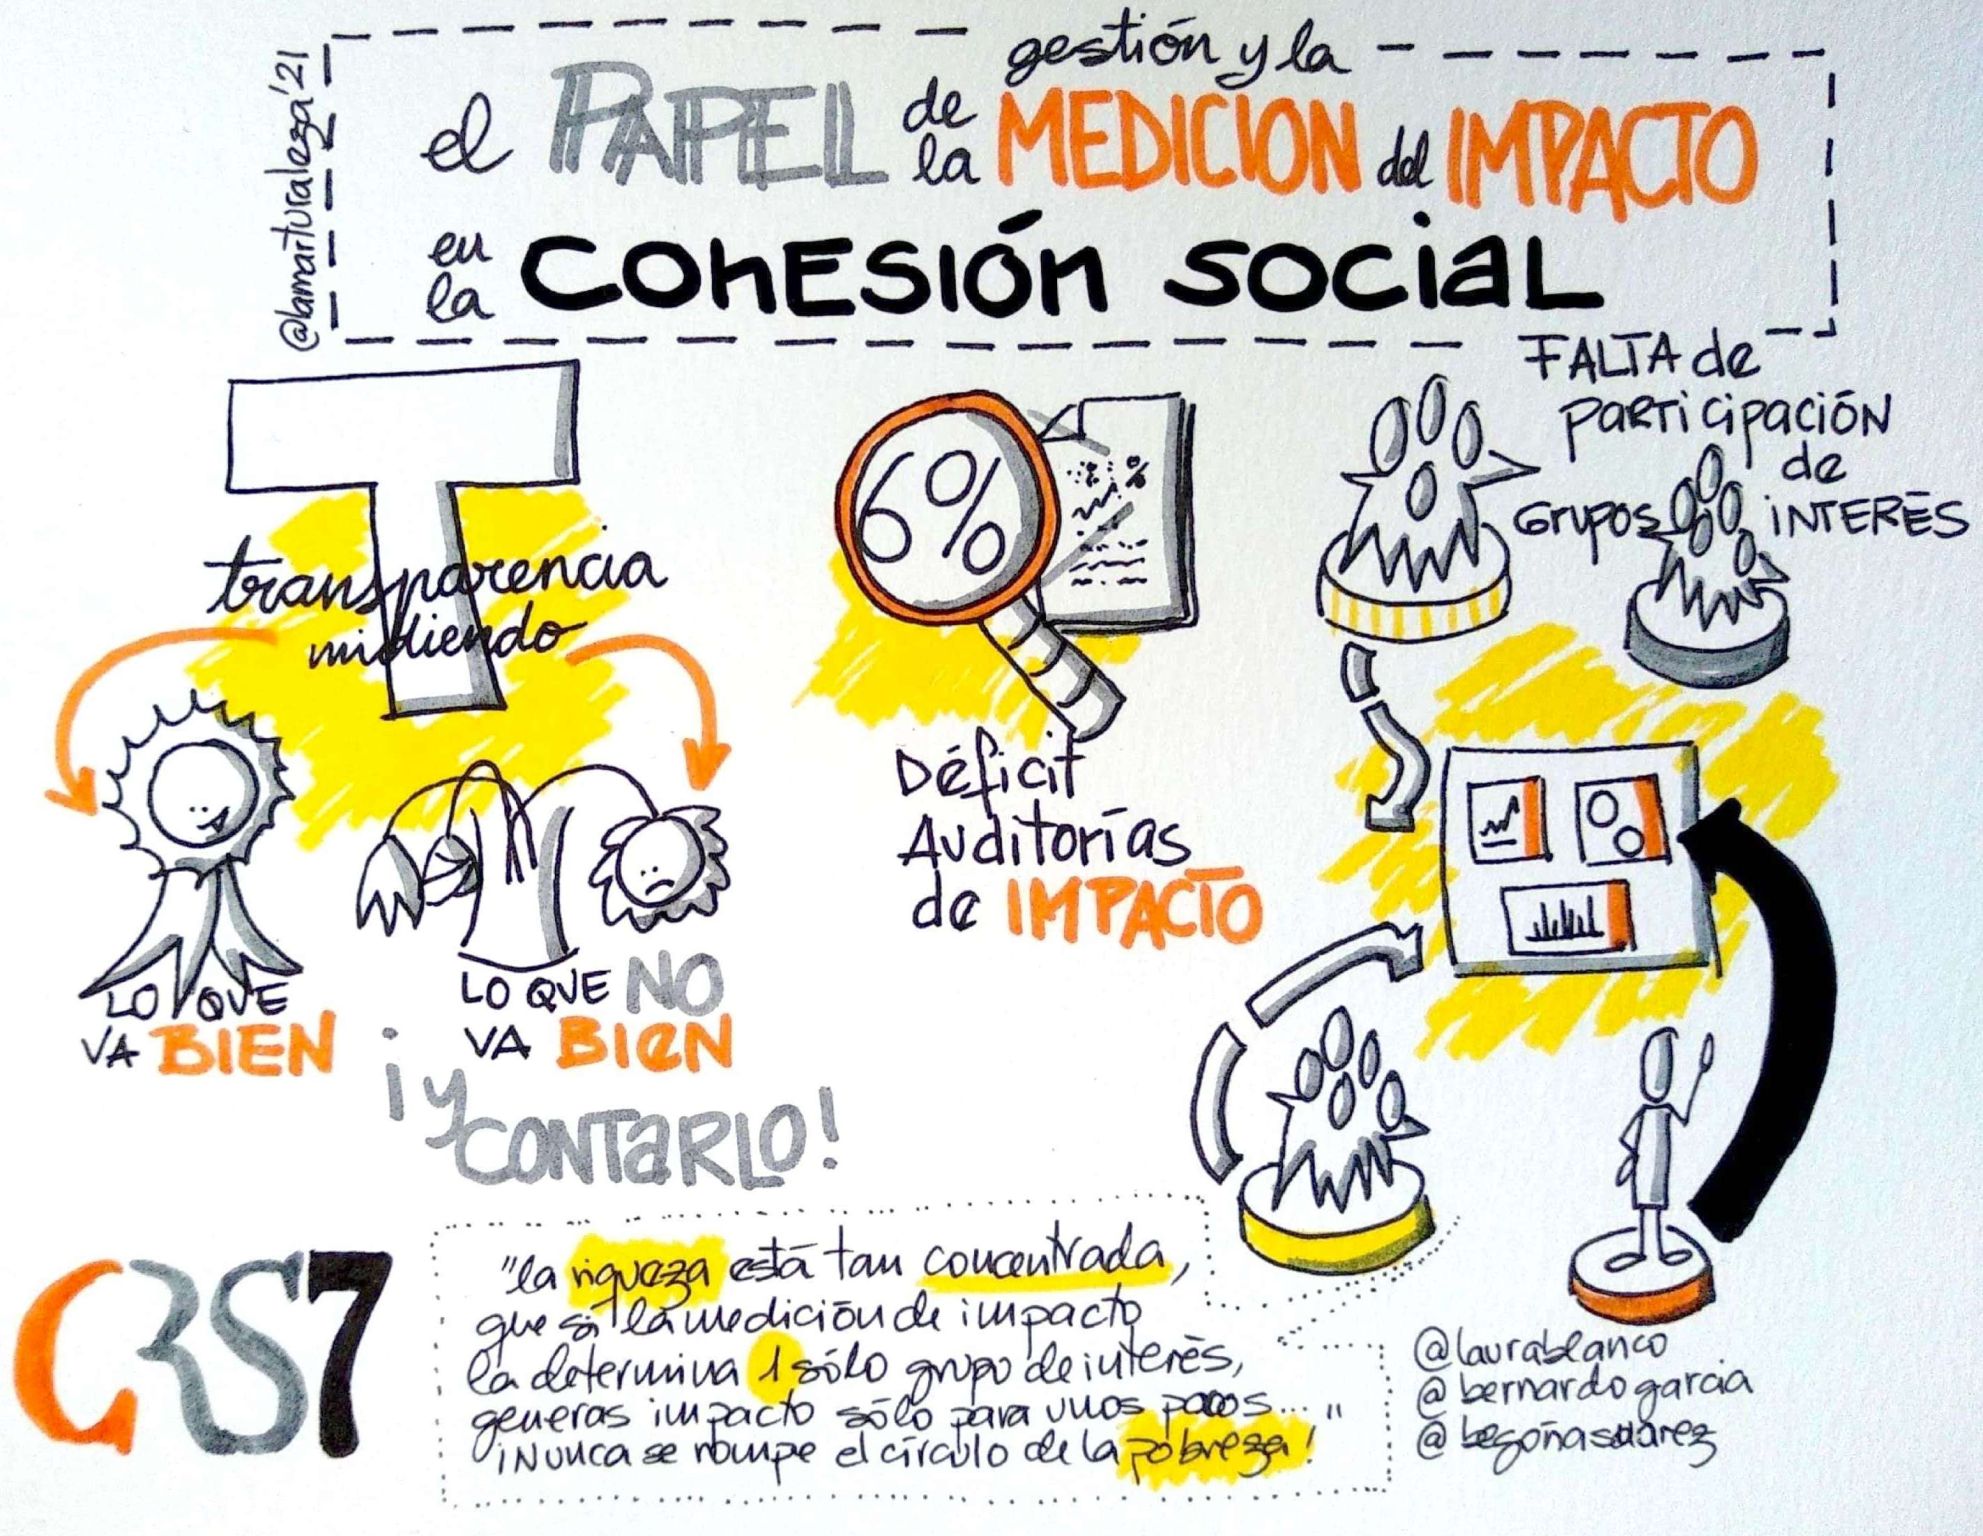 @lamarturaleza'21
gestión y la
el PAPEL de la MEDICION del IMPACTO
en la COHESIÓN SOCIAL
T
transparencia
midiendo
LO QUE
VA BIEN
LO QUE NO
VA BIEN
¡y
CONTARLO!
6%
%
Déficit
Auditorías
de IMPACTO
FALTA de
PARTICIPACIÓN
de
GRUPOS INTERÉS
CRS7
"la riqueza está tan concentrada,
que si la medición de impacto
la determina 1 sólo grupo de interés,
generas impacto sólo para unos pocos..."
¡Nunca se rompe el círculo de la pobreza!
@laurablanco
@bernardogarcia
@begoñasuárez